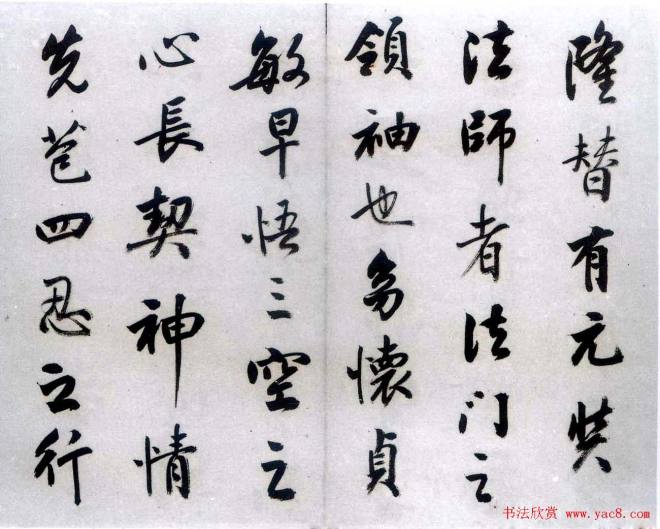 隆替有元奘
法師者法門之
領袖也㓜懷貞
敏早悟三空之
心長契神情
先苞四忍之行
书法欣赏 www.yac8.com